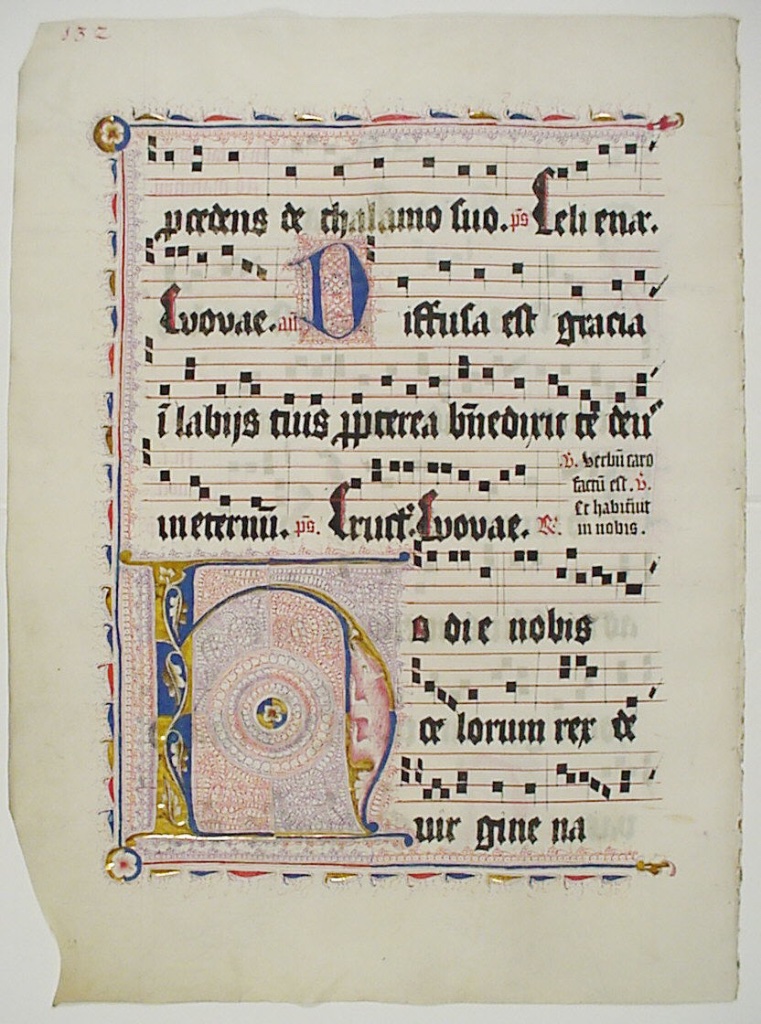 132
pcedens de thalamo suo. ps Celi enar.
Evovae. añ Diffusa est gracia
ī labijs tuis ppterea bñedixit te deu
in eternū. ps. Eruct. Evovae. R.
V. Verbū caro
factū est. V.
Et habitāuit
in nobis.
Hodie nobis
ce lorum rex de
uir gine na